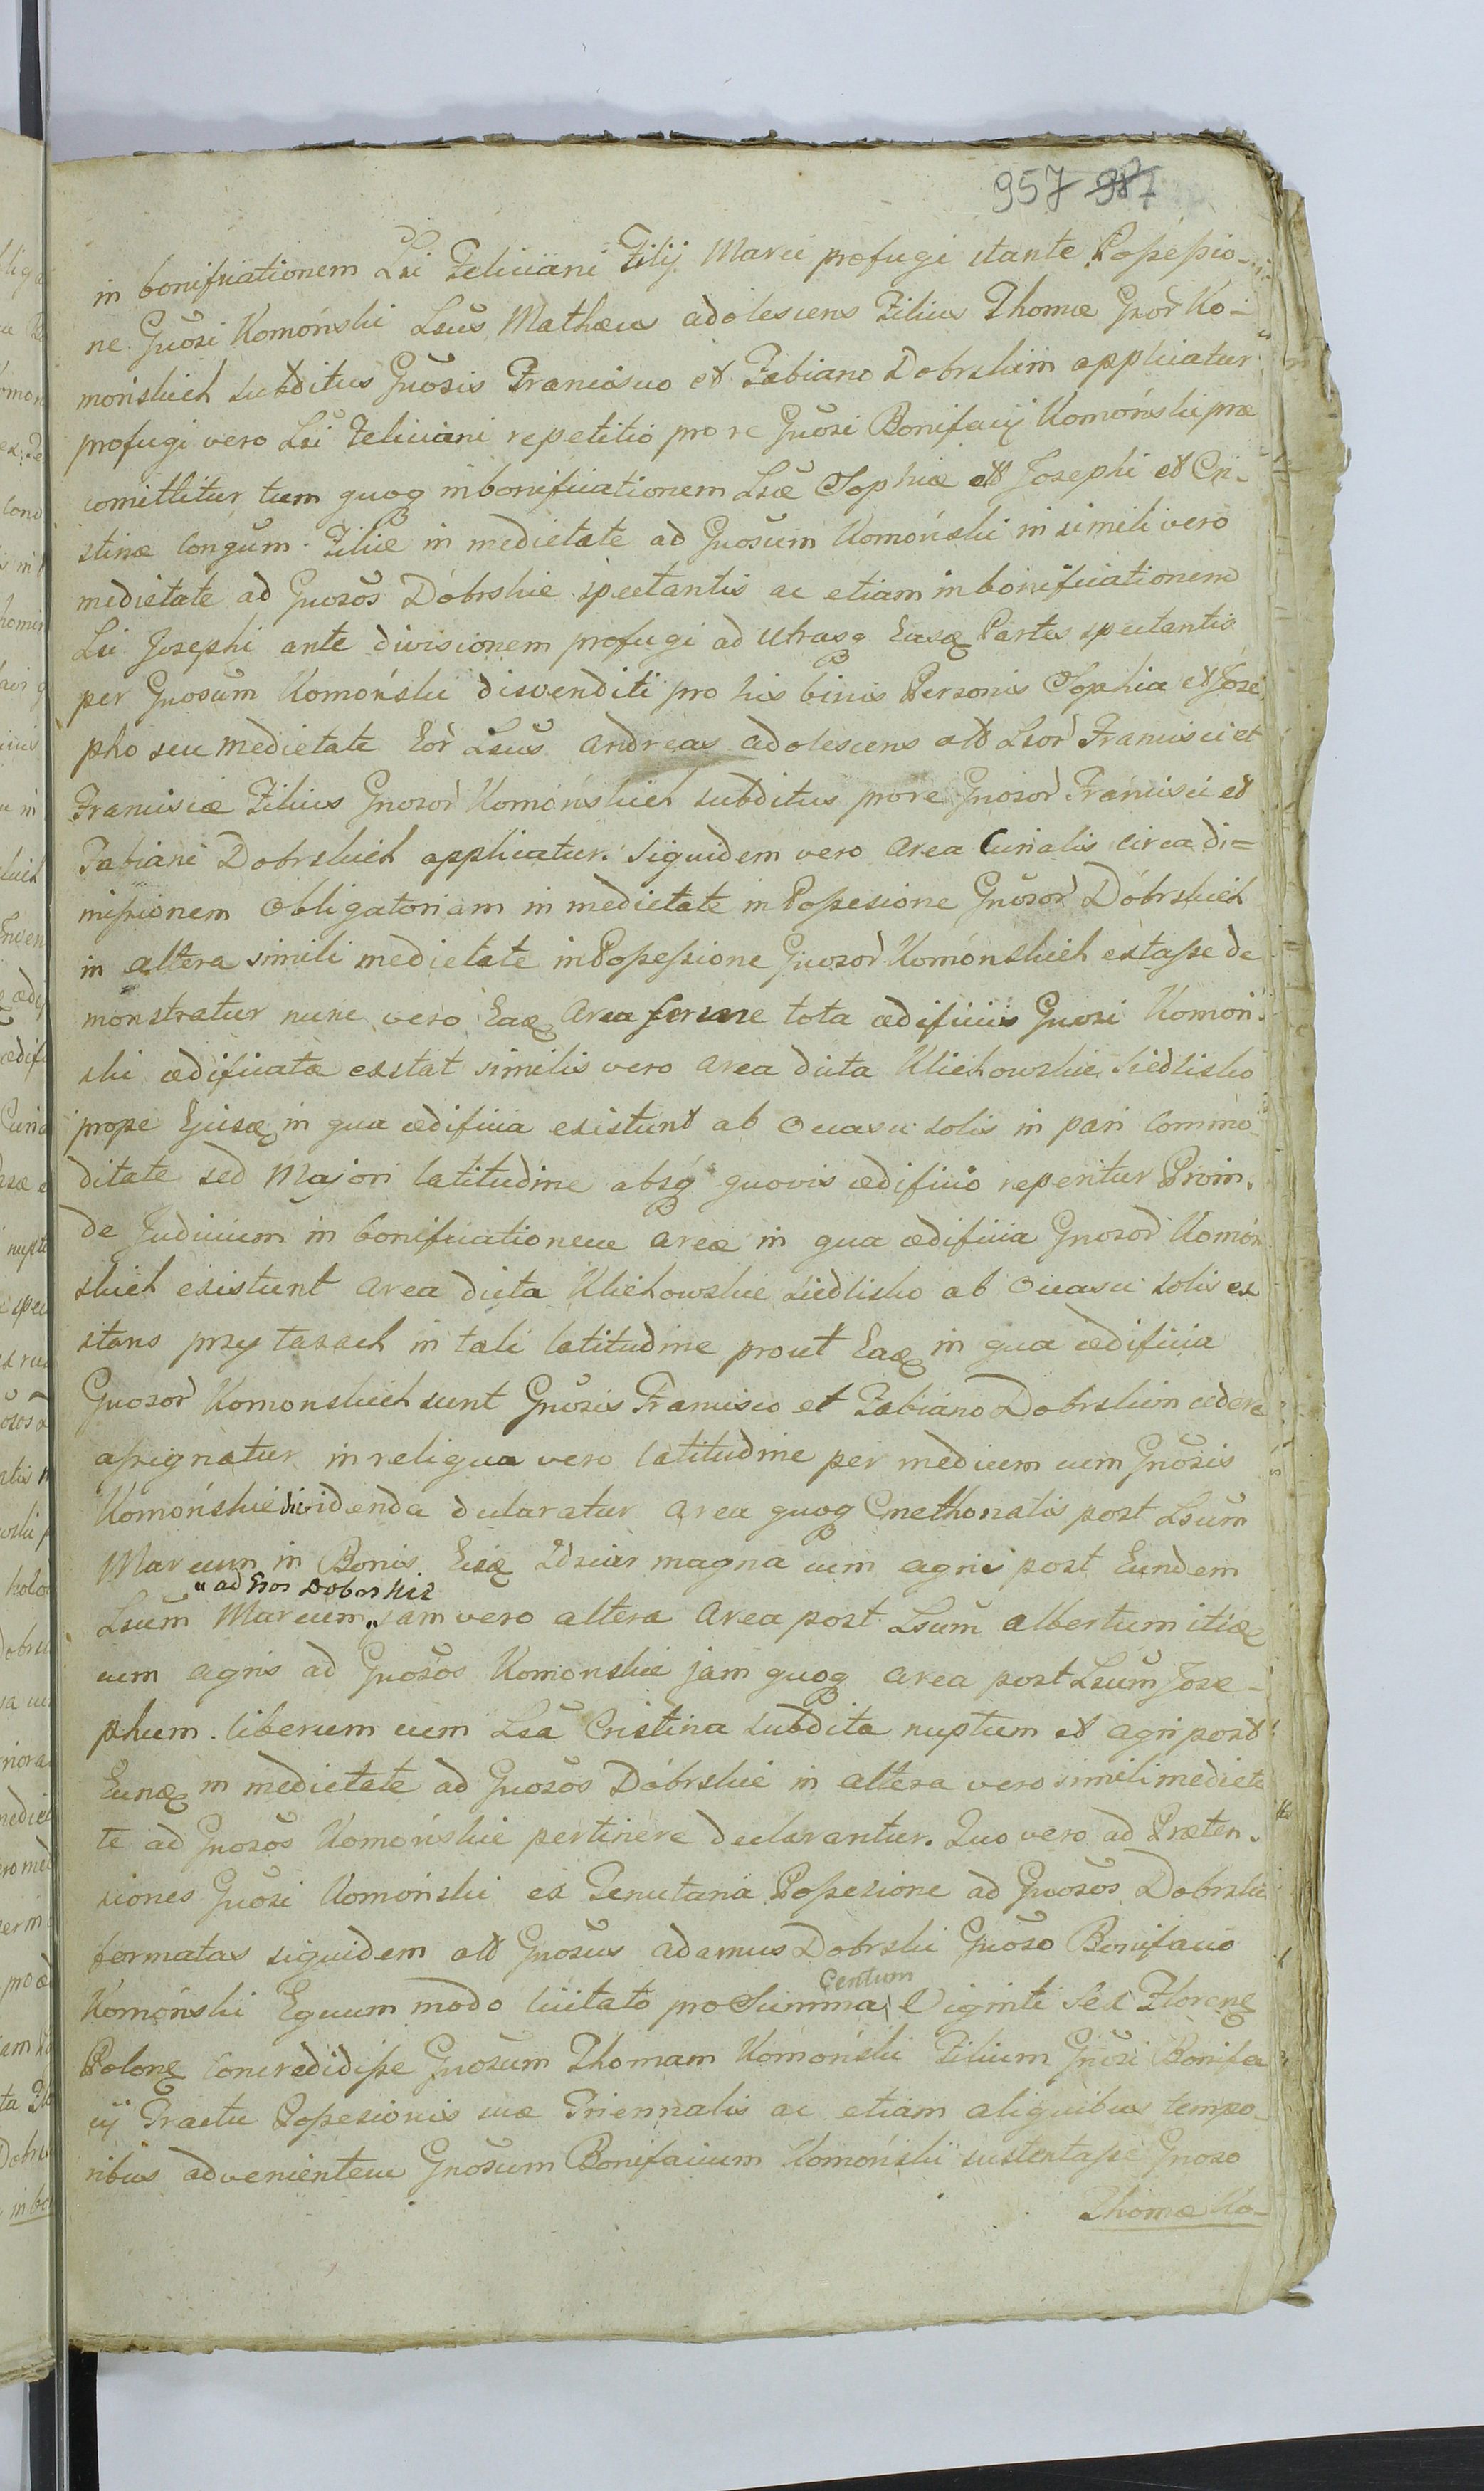 957 987
in bonificationem Lsi Feliciani Filij Marci profugi stante Possessio-
ne Gnosi Komoński Lsus Mathæus adolescens Filius Thomæ Gnor Ko-
mońskich subditus Gnosis Francisco et Fabiano Dobrskim applicatur
profugi vero Lsi Feliciani repetitio pro re Gnosi Bonifacij Komoński præ
comittitur, tum quoq in bonificationem Lsæ Sophiæ olt Josephi et Cri-
stinæ Congum Filiæ in medietate ad Gnosum Komoński in simili vero
medietate ad Gnosos Dobrskie spectantis ac etiam in bonificationem
Lsi Josephi ante divisionem profugi ad Utrasq Easq Partes spectantis
per Gnosum Komoński disvenditi pro his binis Personis Sophia et Jose
pho seu medietate Eor Lsus Andreas adolescens olt Lsor Francisci et
Franciscæ Filius Gnosor Komońskich subditus pro re Gnosor Francisci et
Fabiani Dobrskich applicatur. Siquidem vero Area Curialis circa di=
missionem Obligatoriam in medietate in Possesione Gnosor Dobrskich
in altera simili medietate in Possessione Gnosor Komońskich extasse de
monstratur nunc vero Eaq Area ferme tota ædificiis Gnosi Komoń
ski ædificata exstat similis vero area dicta Klichowskie Siedlisko
prope Ejusq in qua ædificia existunt ab Occasu solis in pari Commo
ditate sed Majori latitudine absq quovis ædificio reperitur Proin-
de Judicium in bonificationem areæ in qua ædificia Gnosor Komoń
skich existunt area dicta Klichowskie Siedlisko ab Occasu solis ex
stans przy tasach in tali latitudine prout Eaq in qua ædificia
Gnosor Komonskich sunt Gnosis Francisco et Fabiano Dobrskim cedere
assignatur in reliqua vero latitudine per medium cum Gnosis
Komońskie dividenda declaratur area quoq Cmethonalis post Lsum
Marcum in Bonis Eisq Zdziar magna cum agris post Eundem
" ad Gsos Dobrskie
Lsum Marcum " jam vero altera Area post Lsum Albertum itiq
cum agris ad Gnosos Komonskie jam quoq area post Lsum Jose-
phum liberum cum Lsa Cristina subdita nuptum et agri post
Eunq in medietate ad Gnosos Dobrskie in altera vero simili medieta
te ad Gnosos Komońskie pertinere declarantur. Quo vero ad Præten-
siones Gnosi Komoński ex Tenutaria Possesione ad Gnosos Dobrskie
formatas siquidem olt Gnosus Adamus Dobrski Gnoso Bonifacio
Centum
Komoński Equum modo licitato pro Summa Viginti Sex Florenq
Polonq Concredidisse Gnosum Thomam Komoński Filium Gnosi Bonifa
cij Tractu Possesionis suæ Triennalis ac etiam aliquibus tempo-
ribus advenientem Gnosum Bonifacium Komoński sustentasse Gnoso
Thomæ Ko-